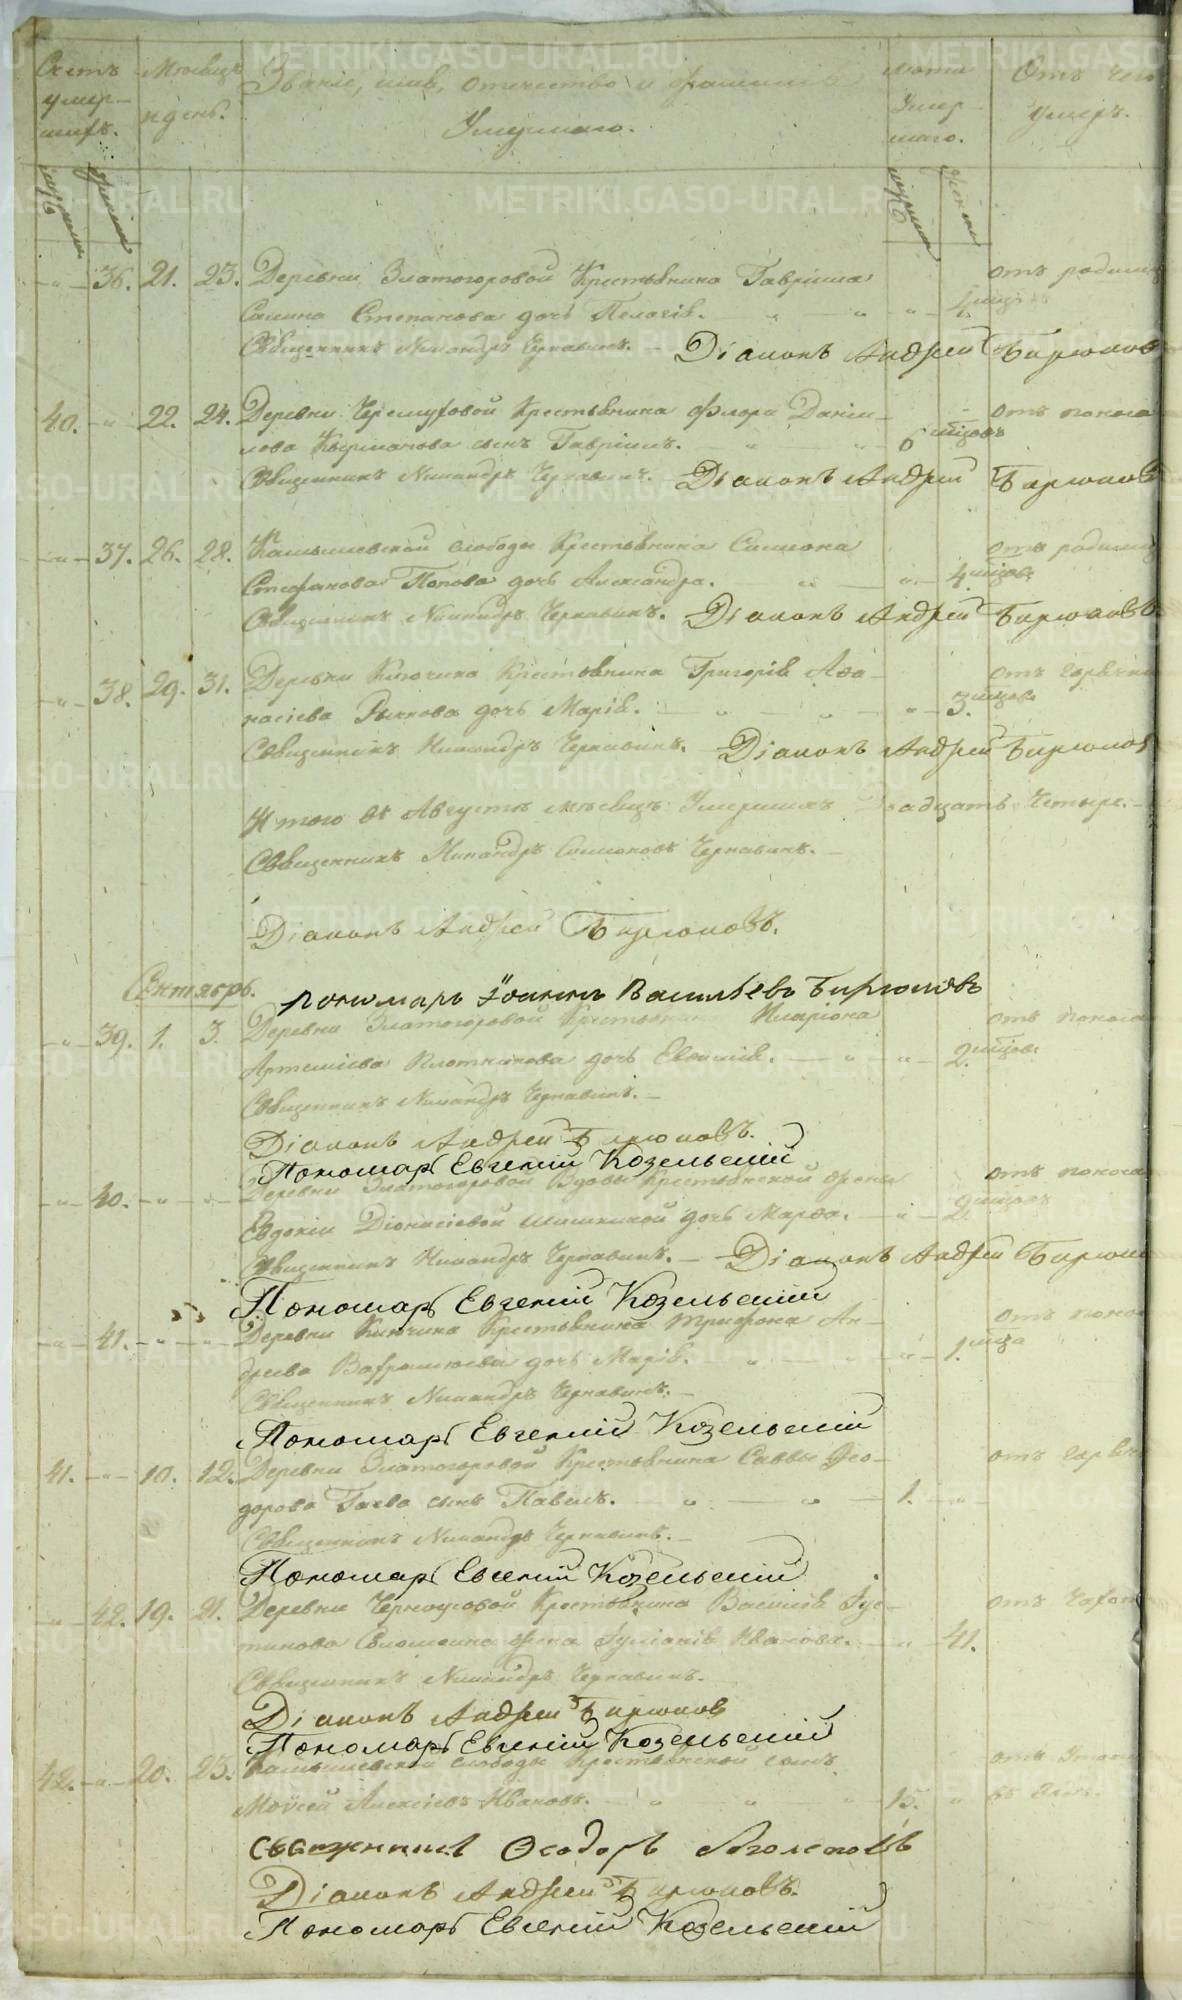 Счетъ умер-шихъ.
Мѣсяцъ и день.
Званіе, имя, отечество и фамилія Умершаго.
Лѣта Умер-шаго.
Отъ чего умеръ.
мужска
женска
мужска
женска
-"- 36. 21. 23. Деревни Златогоровой Крестьянина Гавріила отъ родимца
Степанова дочь Пелагія. " " 4. мцовъ
Священникъ Никандръ Чернавинъ. Діаконъ Андрей Бирюковъ
40. -"- 22. 24. Деревни Черемуховой Крестьянина Флора Даніи- отъ поноса
лова сынъ Гавріилъ. " " 6 мцовъ
Священникъ Никандръ Чернавинъ. Діаконъ Андрей Бирюковъ
-"- 37. 26. 28. Камышевской слободы Крестьянина Симеона отъ родимца
Стефанова Попова дочь Александра. " " 4. мцовъ
Священникъ Никандръ Чернавинъ. Діаконъ Андрей Бирюковъ
-"- 38. 29. 31. Деревни Ключика Крестьянина Григорія Афа- отъ горячки
насіева дочь Марія. " " " 3. мцовъ
Священникъ Никандръ Чернавинъ. Діаконъ Андрей Бирюков
Итого въ Августѣ мѣсяцѣ Умершихъ Двадцать Четыре.
Священникъ Никандръ Симоновъ Чернавинъ.
Діаконъ Андрей Бирюковъ.
Сентябрь. Пономарь Іоаннъ Васильевъ Бирюковъ
-"- 39. 1. 3. Деревни Златогоровой Крестьянина Иларіона отъ поноса
Артеміева Плотникова дочь Евфимія. " " 2. мцовъ
Священникъ Никандръ Чернавинъ.
Діаконъ Андрей Бирюковъ.
Пономарь Евгеній Козельскій
-"- 40. -"- -"- Деревни Златогоровой Вдовы Крестьянской жены отъ поноса
Евдокіи Діонисіевой Шишкиной дочь Марфа. " 2. мцовъ
Священникъ Никандръ Чернавинъ. Діаконъ Андрей Бирюко
Пономарь Евгеній Козельскій
-"- 41. -"- -"- Деревни Ключика Крестьянина Трифона Ан- отъ поноса
дреева дочь Марія. " " " 1. мца
Священникъ Никандръ Чернавинъ.
Пономарь Евгеній Козельскій
41. -"- 10. 12. Деревни Златогоровой Крестьянина Саввы Фео- отъ горяч
дорова Гаева сынъ Павелъ. " " 1. "
Священникъ Никандръ Чернавинъ.
Пономарь Евгеній Козельскій
-"- 42. 19. 21. Деревни Черноусовой Крестьянина Василія Іус- отъ Чахот
тинова жена Іуліанія Иванова. " 41.
Священникъ Никандръ Чернавинъ.
Діаконъ Андрей Бирюков
Пономарь Евгеній Козельскій
42. -"- 20. 23. Камышевской слободы Крестьянской сынъ
Моѵсей Алексіевъ Ивановъ. " " " 15. "
Священникъ Феодоръ
Діаконъ Андрей Бирюковъ.
Пономарь Евгеній Козельскій